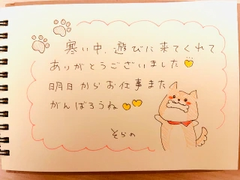 寒い中、遊びに来てくれて
ありがとうございました
明日からお仕事また
がんばろうね
そらの